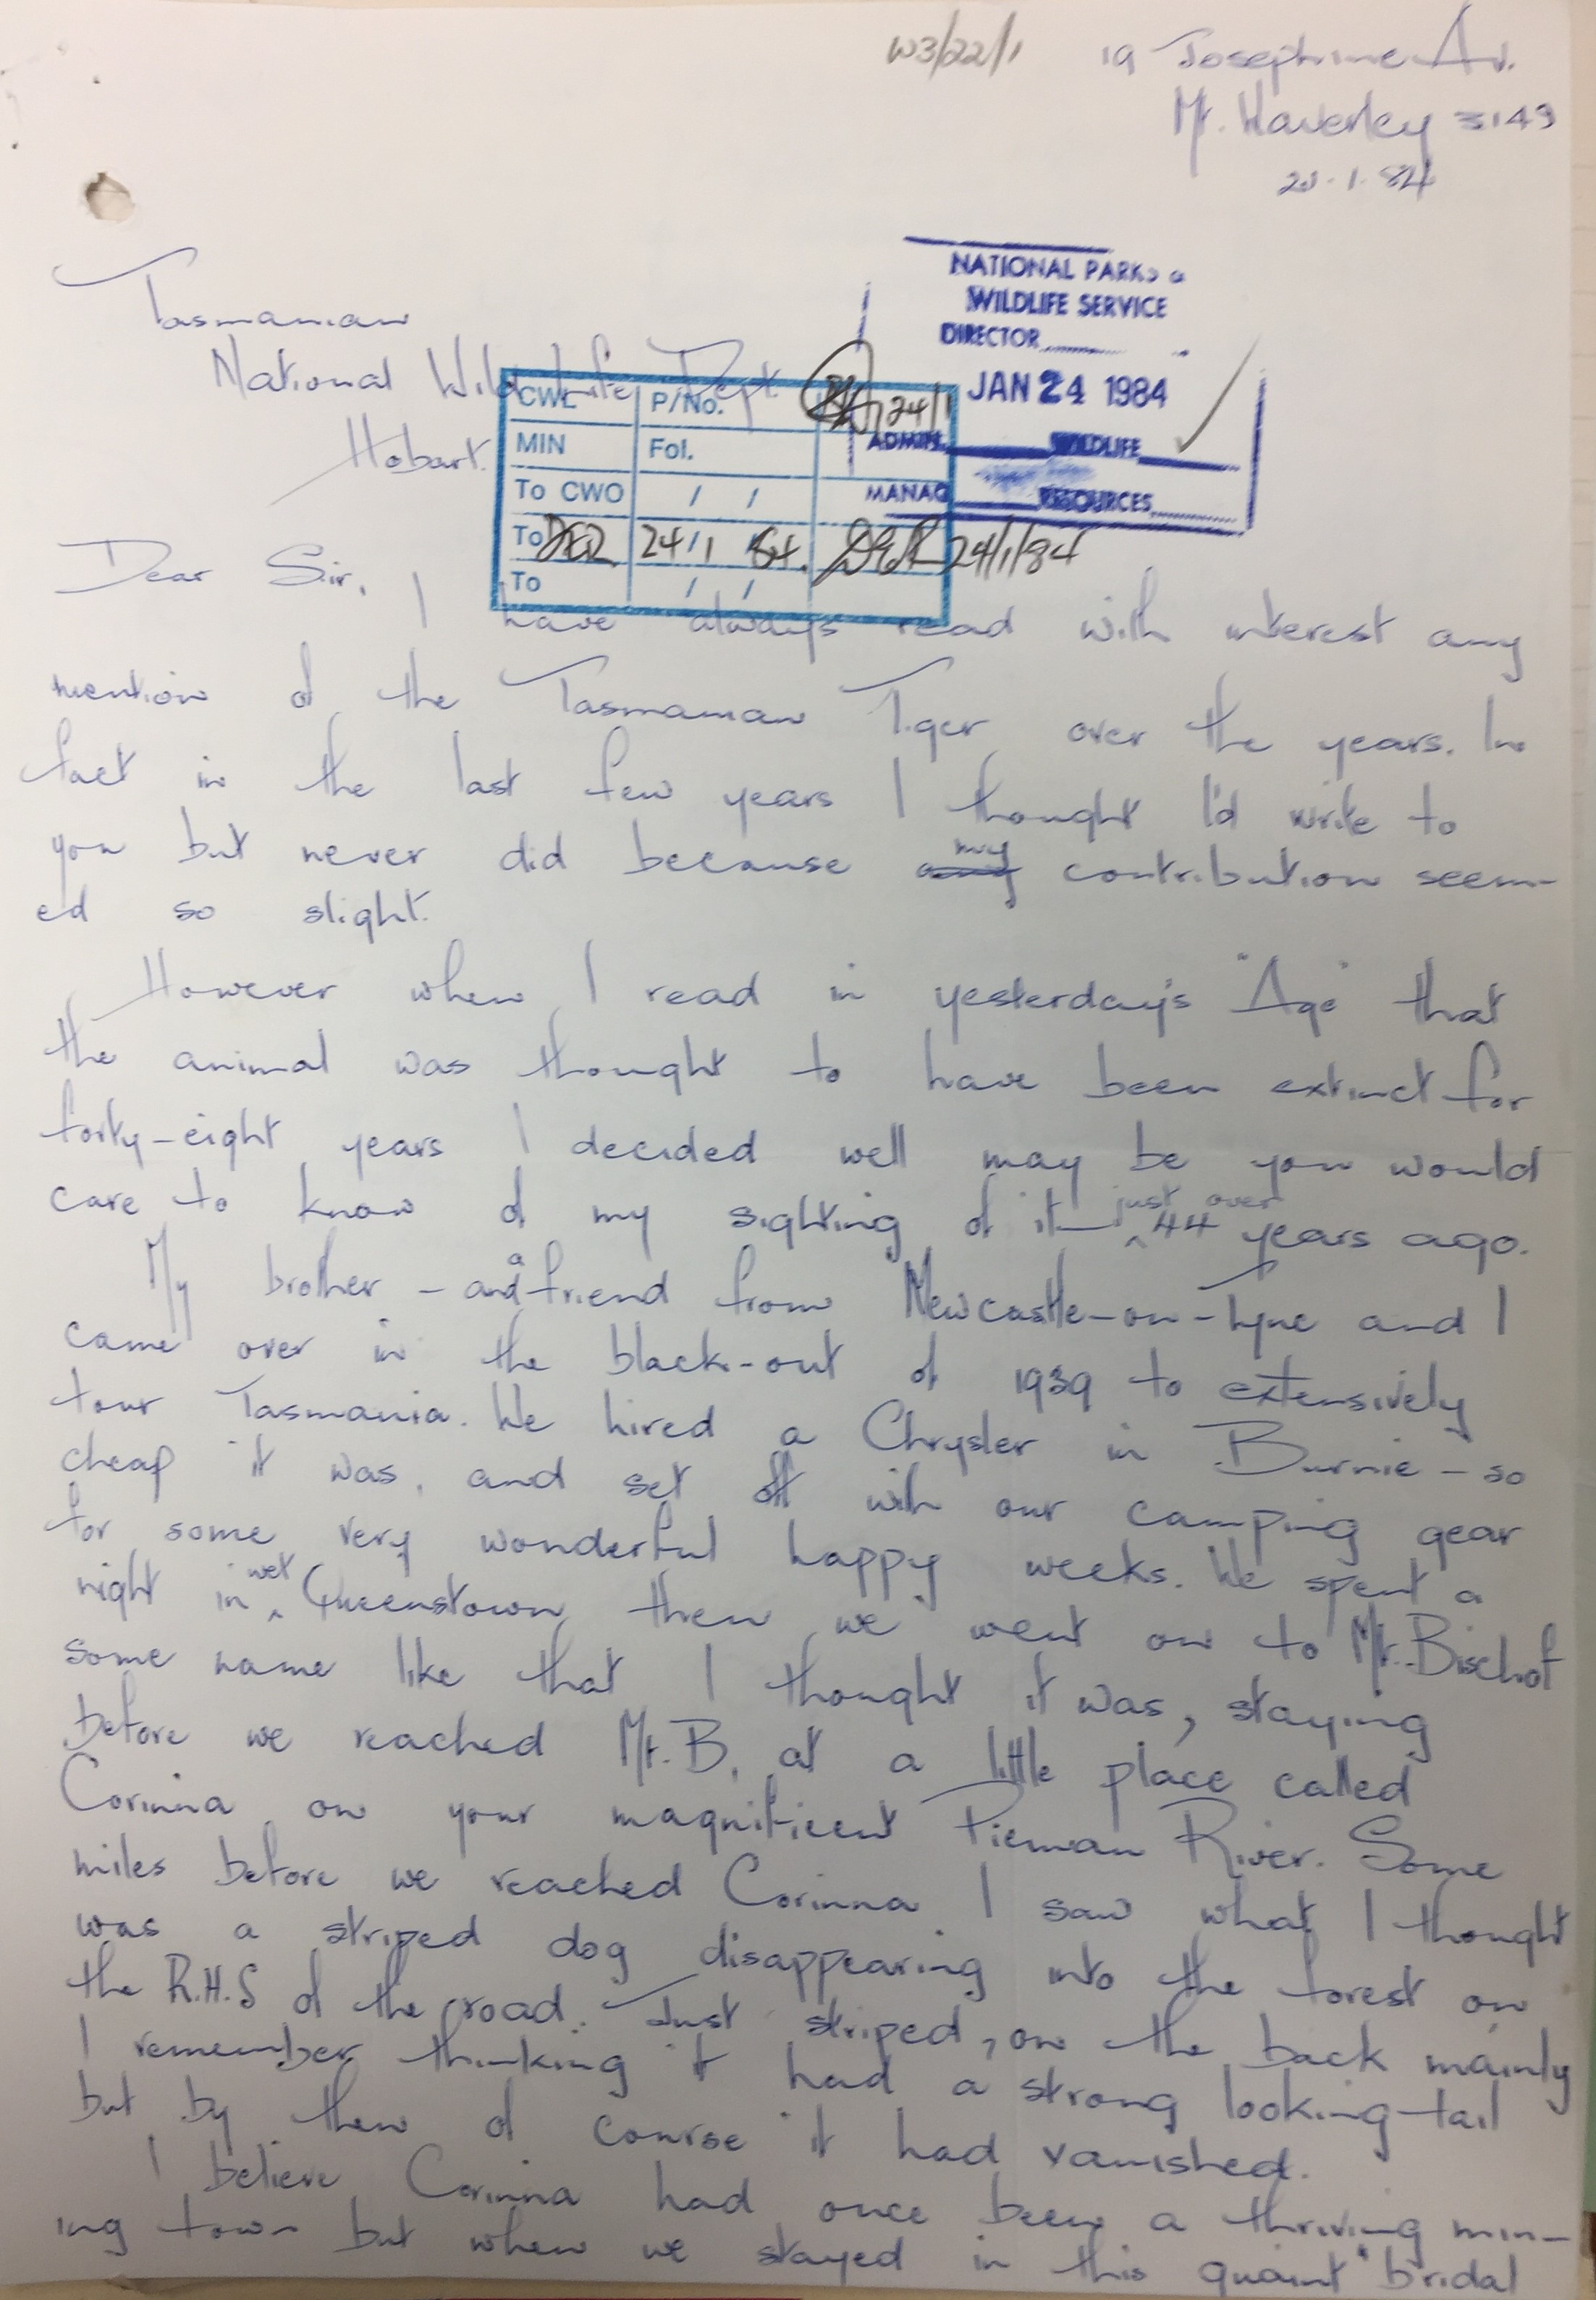 W3/22/1
19 Josephine Av.
Mt. Waverley 3149
20.1.84
NATIONAL PARKS &
WILDLIFE SERVICE
DIRECTOR
JAN 24 1984
ADMIN. WILDLIFE
MANAG RESOURCES
Tasmanian
National Wildlife Dept.
Hobart.
CWL P/No. 24/1
MIN Fol.
To CWO / /
To 24/1/84. 24/1/84
To / /
Dear Sir, I have always read with interest any
mention of the Tasmanian Tiger over the years. In
fact in the last few years I thought I'd write to
you but never did because any my contribution seem-
ed so slight.
However when I read in yesterday's "Age" that
the animal was thought to have been extinct for
forty-eight years I decided well may be you would
care to know of my sighting of it – just over 44 years ago.
My brother – and a friend from Newcastle-on-Tyne and I
came over in the black-out of 1939 to extensively
tour Tasmania. We hired a Chrysler in Burnie – so
cheap it was, and set off with our camping gear
for some very wonderful happy weeks. We spent a
night in wet Queenstown then we went on to Mt. Bischof
some name like that I thought it was, staying
before we reached Mt. B. at a little place called
Corinna on your magnificent Pieman River. Some
miles before we reached Corinna I saw what I thought
was a striped dog disappearing into the forest on
the R.H.S of the road. Just striped, on the back mainly
I remember thinking it had a strong looking tail
but by then of course it had vanished.
I believe Corinna had once been a thriving min-
ing town but when we stayed in this quaint "bridal